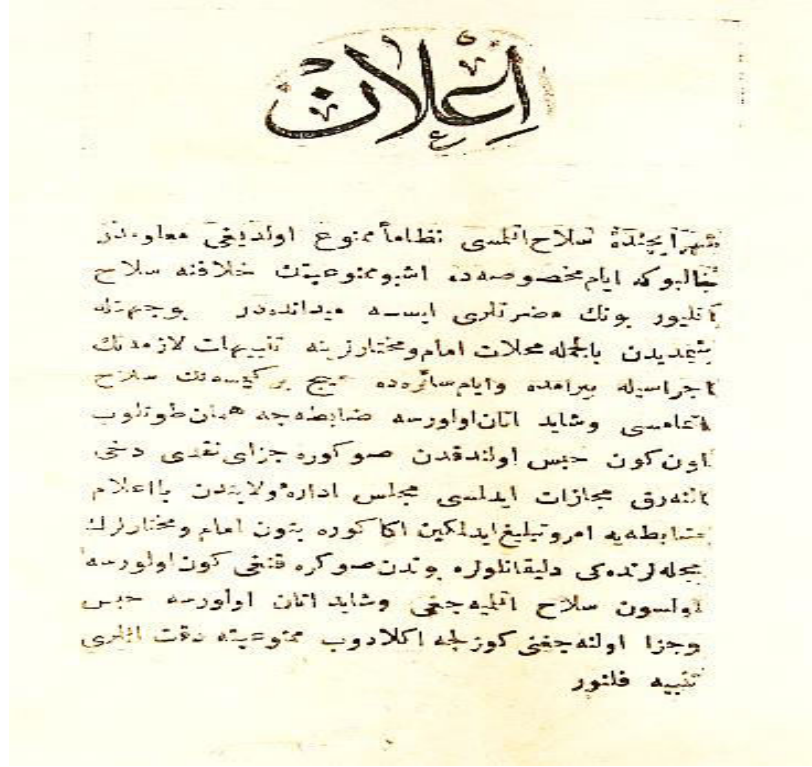 اعلان
شهر ايچنده سلاح اتلمسى نظاماً ممنوع اولديغى معلومدر
بوكه ايام مخصوصه ده اشبو ممنوعيتك خلافنه سلاح
اتليور بونك مضرتلرى ايسه ميدانده در بوجهتله
شيمديدن بالجمله محلات امام ومختارلرينه تنبيهات لازمه نك
اجراسيله بيرامده وايام سائره ده هيچ بر كيمسه نك سلاح
اتمامسى وشايد اتان اولورسه ضابطه جه همان طوتلوب
اون كون حبس اولندقدن صوكره جزاى نقدى دخى
النه رق مجازات ايدلمسى مجلس اداره ولايتدن بااعلام
ضابطه يه امر وتبليغ ايدلمكين اكا كوره بتون امام ومختارلرك
محله لرنده كى دليقانلولره بوندن صوكره قنغى كون اولورسه
اولسون سلاح اتلميه جغى وشايد اتان اولورسه حبس
وجزا اولنه جغنى كوزلجه اكلادوب ممنوعيته دقت ايتلرى
تنبيه قلنور